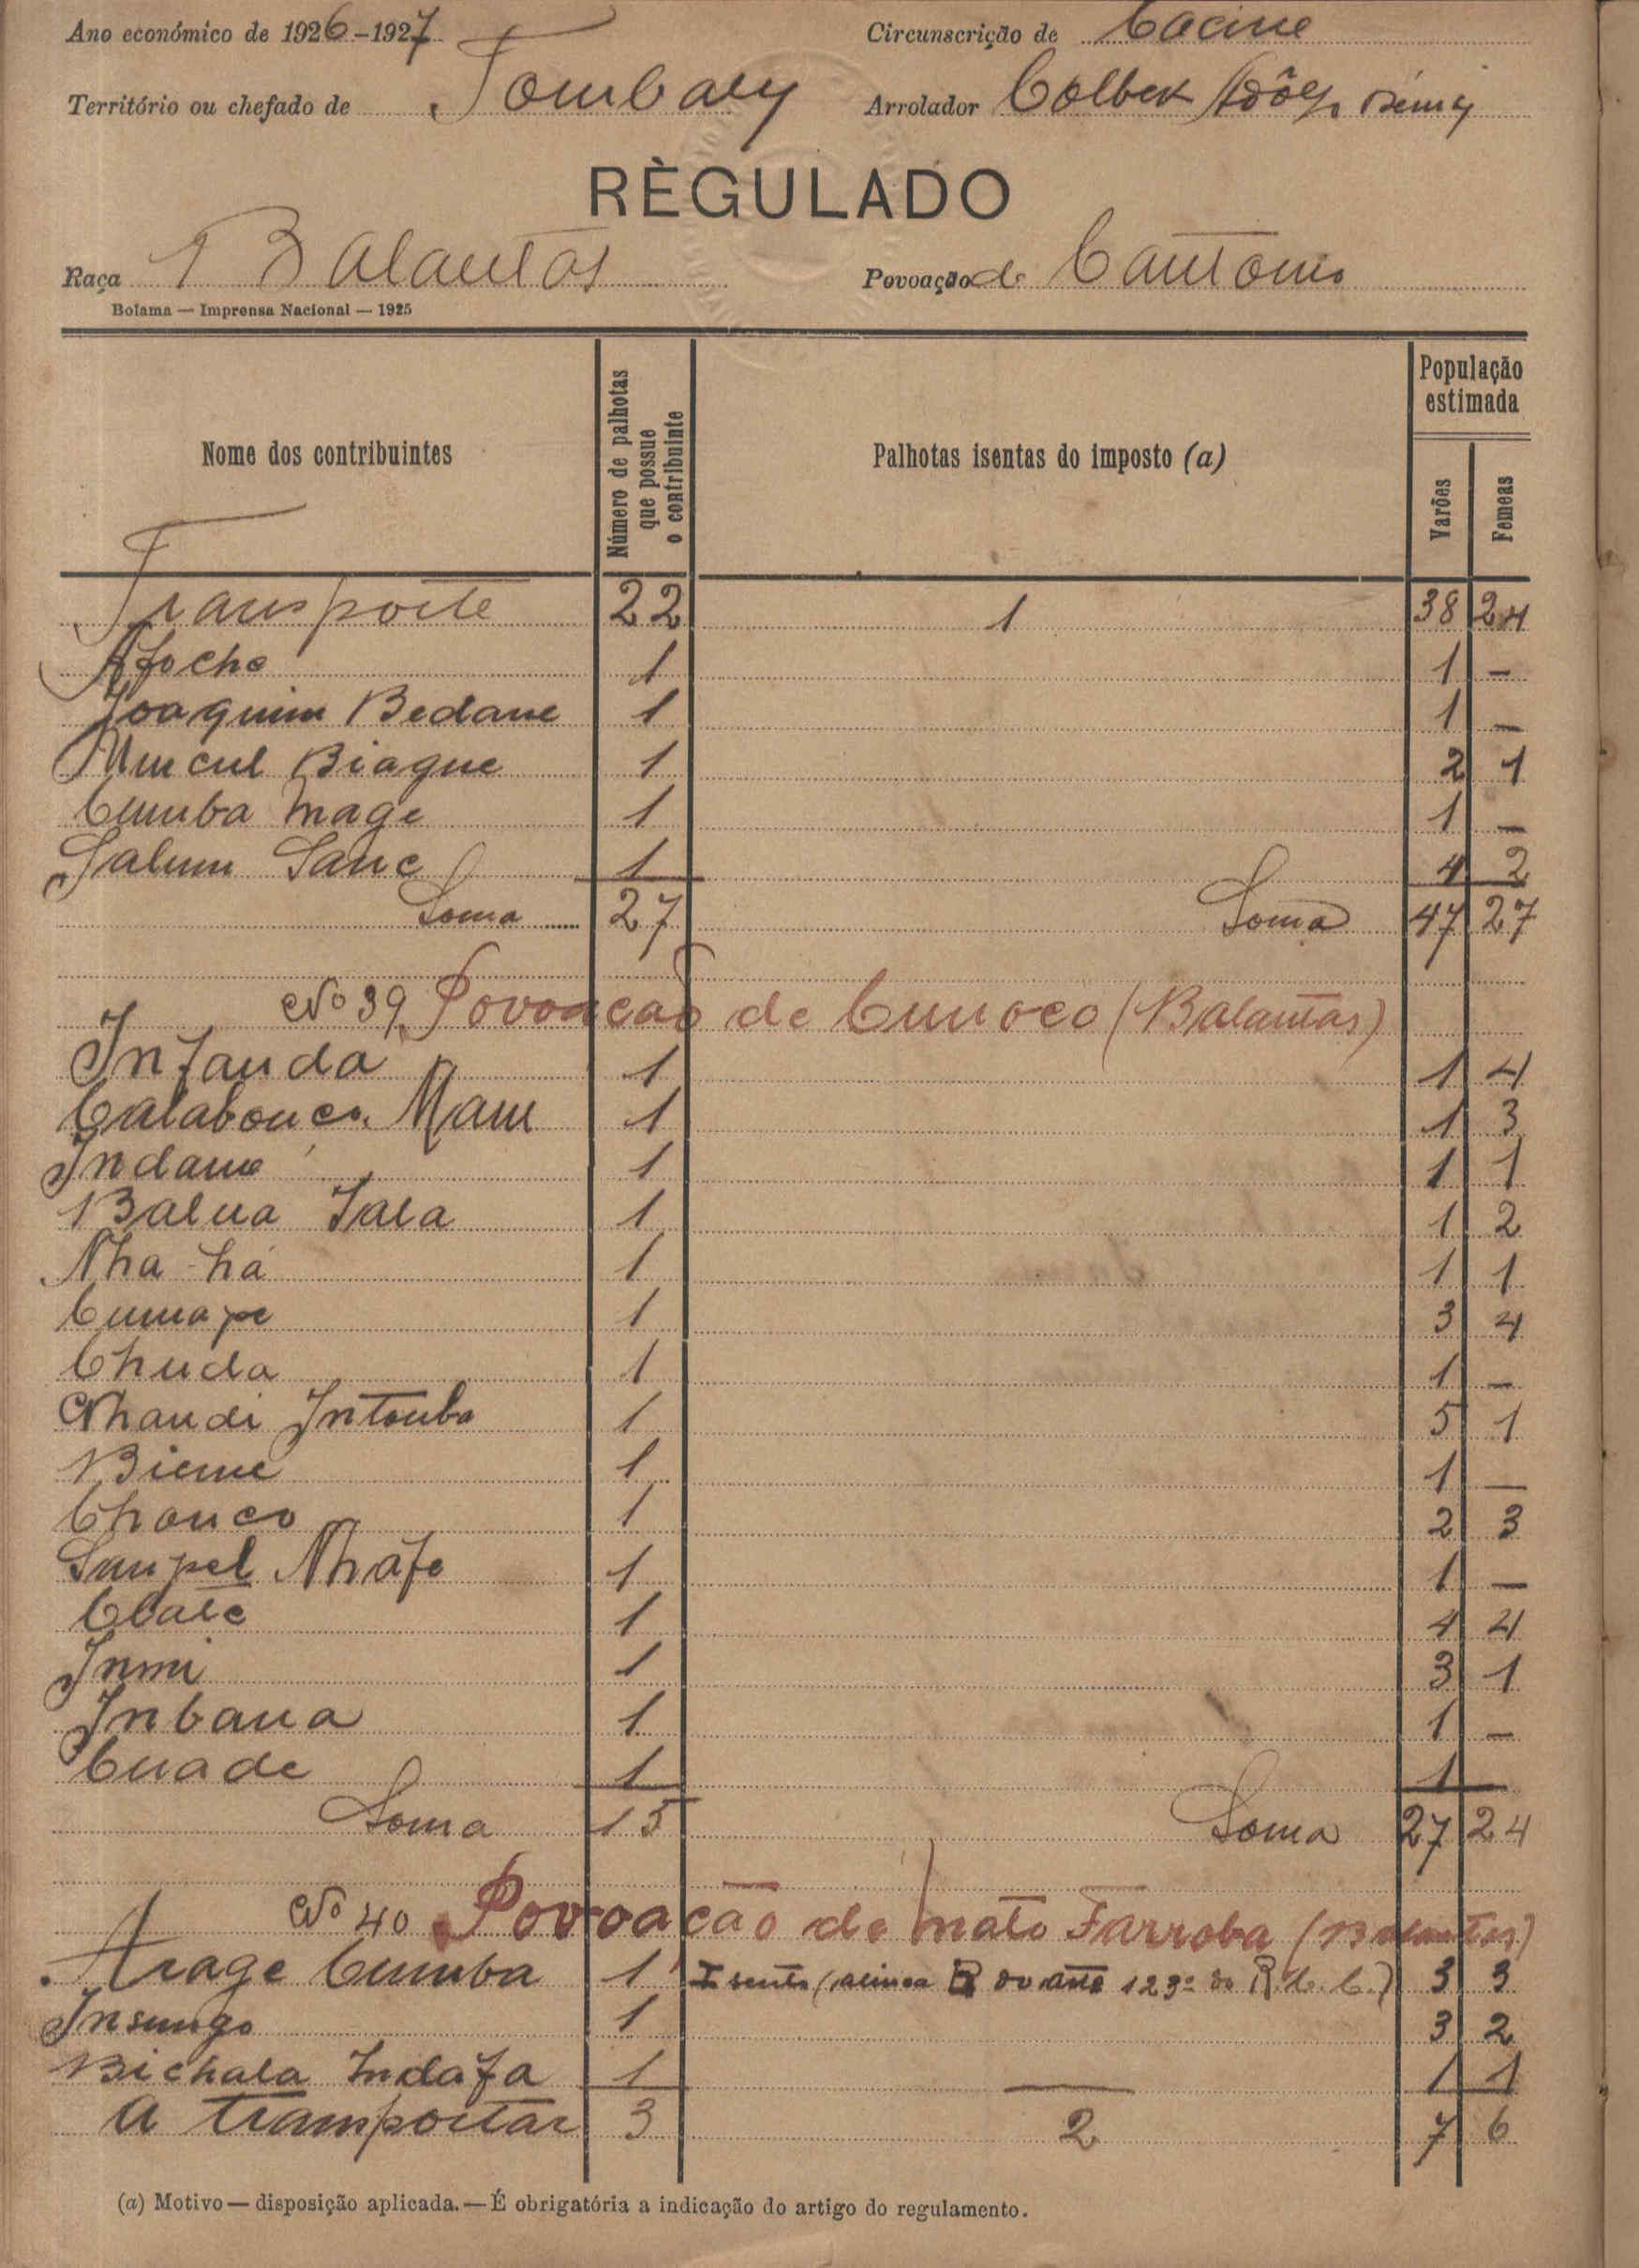 Ano económico de 1926-1927 Circunscrição de Cacine
Território ou chefado de Tombaly Arrolador Colbert
RÈGULADO
Raça Balantas Povoação de Cantonio
Bolama — Imprensa Nacional — 1925
Nome dos contribuintes Número de palhotas que possue o contribuinte Palhotas isentas do imposto (a) População estimada Varões Femeas
Transporte 22 1 38 24
Afoche 1 1 —
Joaquim Bedane 1 1 —
Umcul Biague 1 2 1
Cumba Mage 1 1 —
Salum Sanc 1 4 2
Soma 27 Soma 47 27
Nº 39 Povoacão de Cunoco (Balantas)
Infanda 1 1 4
Calabouco Mam 1 1 3
Indame 1 1 1
Balna Iala 1 1 2
Nha-há 1 1 1
Cumape 1 3 4
Chuda 1 1 —
Nhandi Intomba 1 5 1
Bieme 1 1 —
Chonco 1 2 3
Sanpel Nhafe 1 1 —
Clate 1 4 4
Inmi 1 3 1
Inbana 1 1 —
Cuade 1 1 —
Soma 15 Soma 27 24
Nº 40 Povoacão de Mato Farroba (Balantas)
Arage Cumba 1 1 Isento (alinea B do artº 123º do R. C. C.) 3 3
Insungo 1 3 2
Bichala Indafa 1 1 1
A transportar 3 2 7 6
(a) Motivo — disposição aplicada. — É obrigatória a indicação do artigo do regulamento.